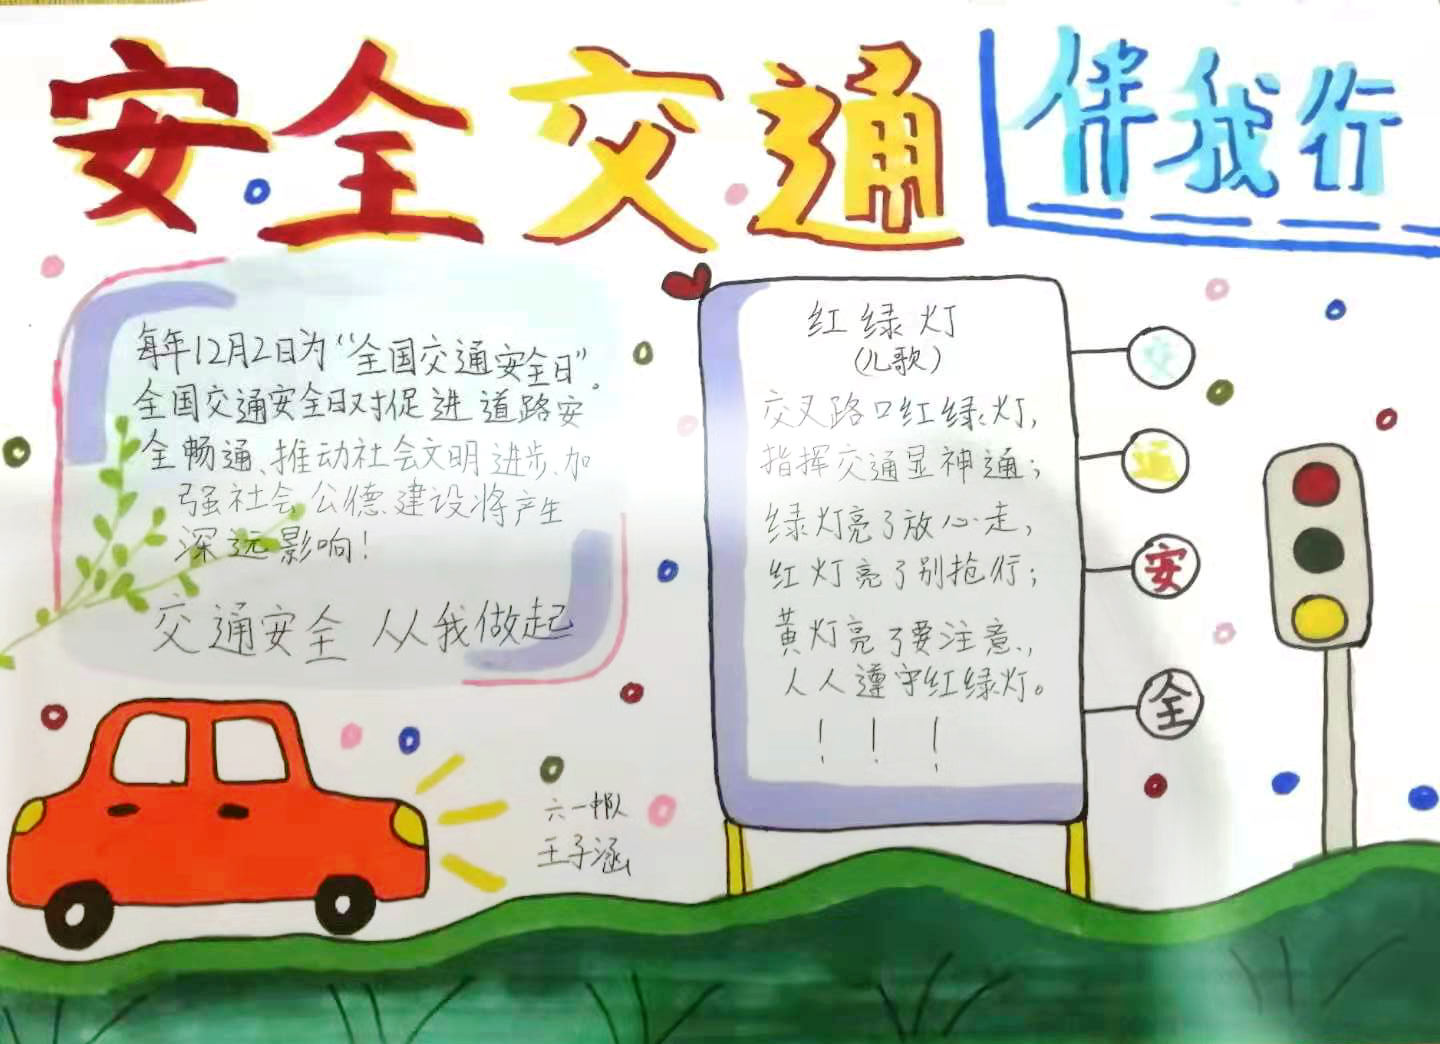 安全交通伴我行
每年12月2日为“全国交通安全日”。
全国交通安全日对促进道路安
全畅通、推动社会文明进步、加
强社会公德建设将产生
深远影响！
交通安全 从我做起
六一中队
王子涵
红绿灯
（儿歌）
交叉路口红绿灯，
指挥交通显神通；
绿灯亮了放心走，
红灯亮了别抢行；
黄灯亮了要注意，
人人遵守红绿灯。
！！！
交
通
安
全